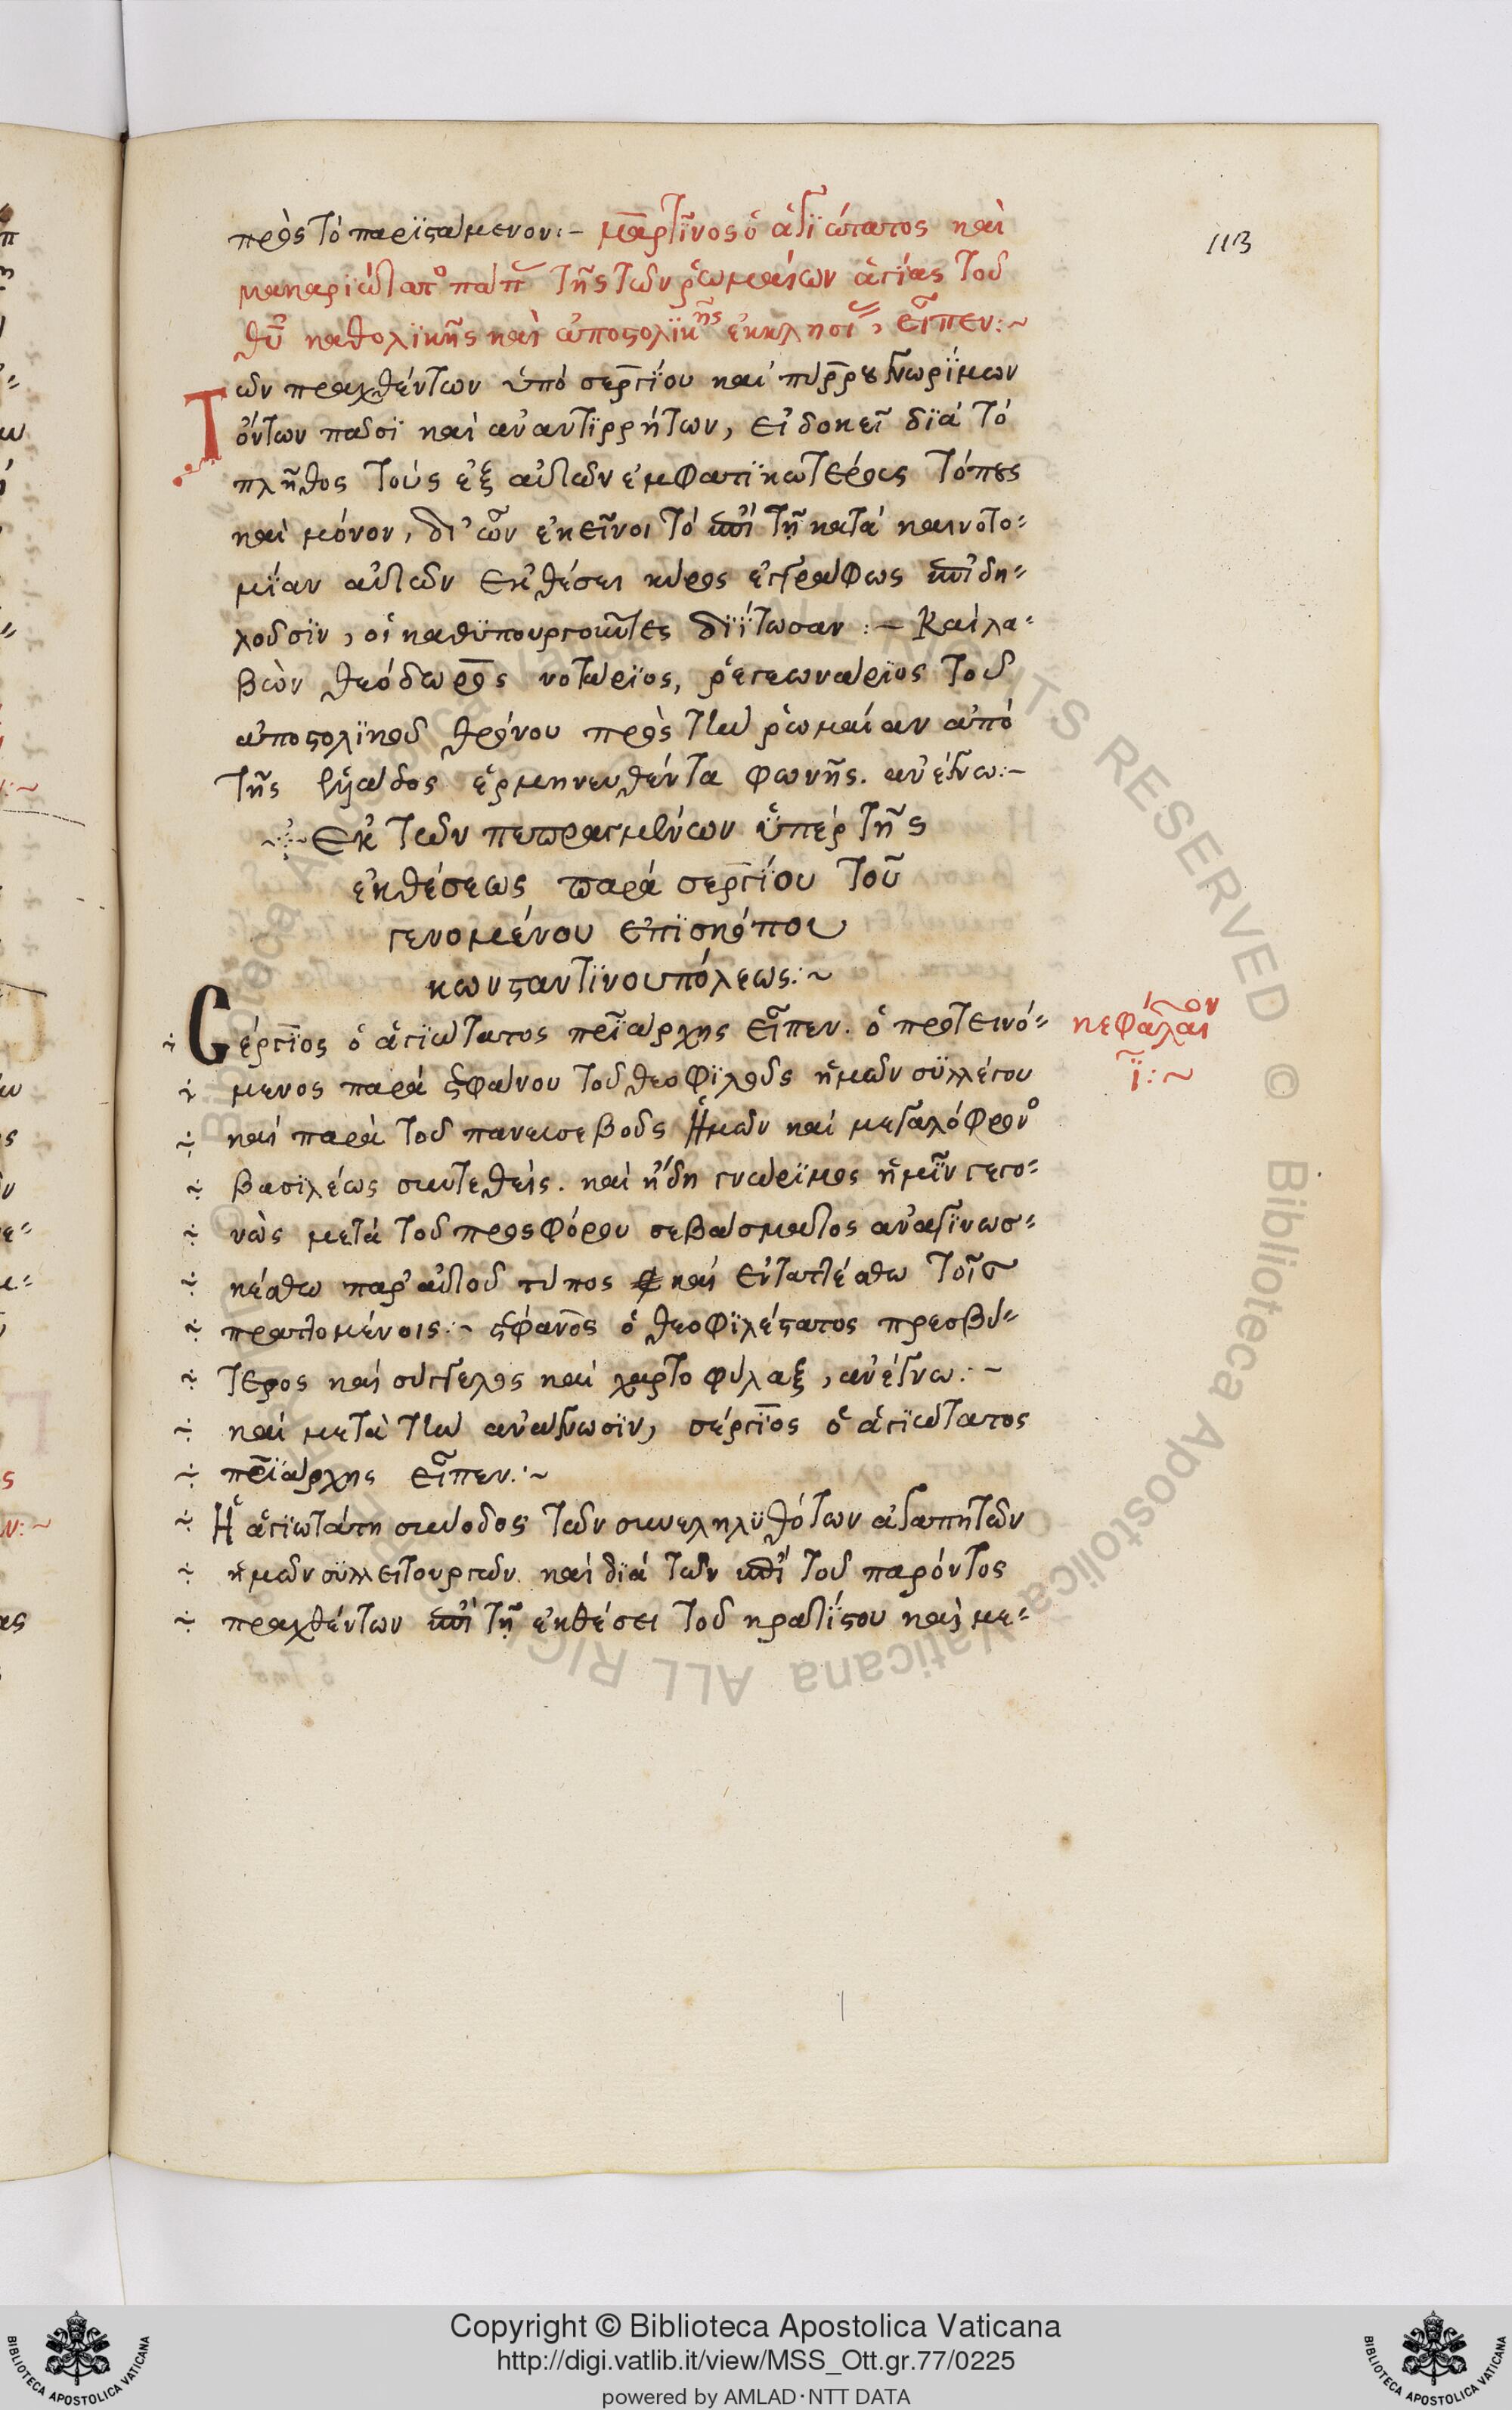 113
πρὸς τὸ παριϛάμενον:– μαρτῖνος ὁ ἁγιώτατος καὶ
μακαριώτατ° πάπ τῆς τῶν ῥωμαίων ἁγίας τοῦ
θῦ καθολϊκῆς καὶ ἀποϛολϊκῆς ἐκκλησί, εἶπεν:~
Τῶν πραχθέντων ὑπὸ σεργΐου καὶ πύρρου γνωρΐμων
ὄντων πᾶσϊ καὶ ἀναντϊρρήτων, εἰ δοκεῖ δϊὰ τὸ
πλῆθος τοὺς ἐξ αὐτῶν ἐμφατϊκωτέρους τόπους
καὶ μόνον, δι' ὧν ἐκεῖνοι τὸ ἐπὶ τῇ κατὰ καινοτο=
μΐαν αὐτῶν ἐκθέσει κύρος ἐγγράφως ἐπιδη=
λοῦσϊν, οἱ καθϋπουργοῦντες δϊΐτωσαν:– Καὶ λα=
βὼν θεόδωρος νοτάρϊος, ῥεγεωνάρϊος τοῦ
ἀποϛολϊκοῦ θρόνου πρὸς τὴν ῥωμαίαν ἀπὸ
τῆς ἑλλάδος ἑρμηνευθέντα φωνῆς. ἀνέγνω:–
Ἐκ τῶν πεπραγμένων ὑπὲρ τῆς
ἐκθέσεως παρὰ σεργΐου τοῦ
γενομένου ἐπϊσκόπου
κωνϛαντϊνουπόλεως:~
Σέργϊος ὁ ἁγϊώτατος πρϊάρχης εἶπεν. ὁ προτεινό=
κεφάλαιον
ϊ:~
μενος παρὰ ϛφάνου τοῦ θεοφϊλοῦς ἡμῶν συλλέγου
καὶ παρὰ τοῦ πανευσεβοῦς ἡμῶν καὶ μεγαλόφρον°
βασϊλέως συντεθεὶς. καὶ ἤδη γνώρϊμος ἡμῖν γεγο=
νὼς μετὰ τοῦ προσφόρου σεβάσματος ἀναγϊνωσ=
κέσθω παρ' αὐτοῦ τύπος καὶ ἐντατλέσθω τοῖς
πραττομένοις:~ ϛφάνος ὁ θεοφϊλέϛατος πρεσβύ=
τερος καὶ σύγγελος καὶ χαρτοφύλαξ, ἀνέγνω:–
καὶ μετὰ τὴν ἀνάγνωσϊν, σέργϊος ὁ ἁγϊώτατος
πρϊάρχης εἶπεν:~
Ἡ ἁγϊωτάτη σύνοδος τῶν συνεληλϋθότων ἀγαπητῶν
ἡμῶν συλλειτουργῶν. καὶ δϊὰ τῶν ἐπὶ τοῦ παρόντος
πραχθέντων ἐπὶ τῇ ἐκθέσει τοῦ κρατΐϛου καὶ με=
Copyright © Biblioteca Apostolica Vaticana
http://digi.vatlib.it/view/MSS_Ott.gr.77/0225
powered by AMLAD·NTT DATA